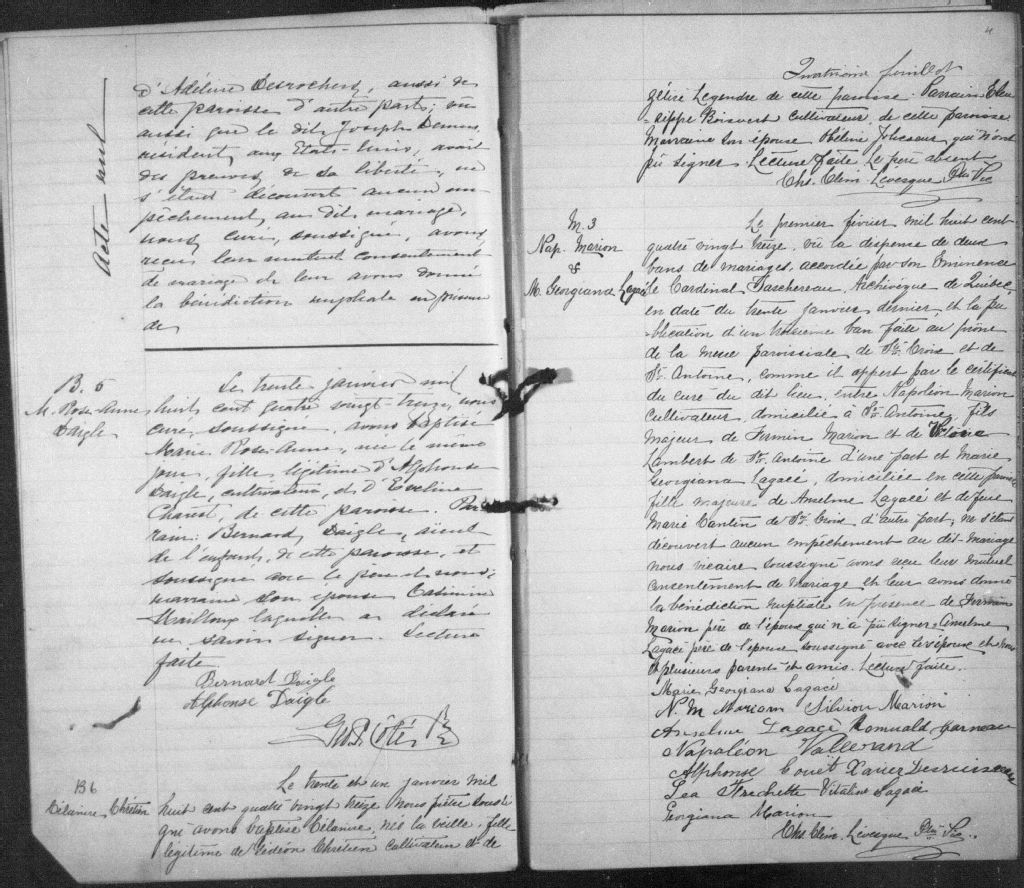 Acte nul
d'Adéline Desrochers, aussi de
cette paroisse d'autre part; vu
aussi que le dit Joseph Demers,
résident aux Etats-Unis, avait
des preuves de sa liberté, ne
s'étant découvert aucun em-
pêchement au dit mariage,
nous, curé, soussigné, avons
reçu leur mutuel consentement
de mariage et leur avons donné
la bénédiction nuptiale en présence
de
B. 5
M. Rose-Anne
Daigle
Le trente janvier mil
huit cent quatre vingt-treize, nous
curé, soussigné, avons baptisé
Marie Rose-Anne, née le même
jour, fille légitime d'Alphonse
Daigle, cultivateur, et d'Eveline
Chârest, de cette paroisse. Par-
rain: Bernard Daigle, aïeul
de l'enfant, de cette paroisse, et
soussigné avec le père et nous;
marraine son épouse
Mailloux laquelle a déclaré
ne savoir signer. Lecture
faite
Bernard Daigle
Alphonse Daigle
Côté Ptre
B 6
Délanire Chrétien
Le trente et un janvier mil
huit cent quatre vingt treize nous prêtre soussi
gné avons baptisé Délanire, née la veille, fille
légitime de Gédéon Chrétien cultivateur et de
4
Quatrième feuillet
Zélire Legendre de cette paroisse. Parrain Eleu
-sippe Boisvert cultivateur de cette paroisse
Marraine son épouse qui n'ont
pu signer. Lecture faite. Le père absent
Chs. Clém. Lévesque Ptre Vic
M. 3
Nap. Marion
&
M. Georgiana Lagacé
Le premier février mil huit cent
quatre vingt treize, vu la dispense de deux
bans de mariages, accordée par son Eminence
le Cardinal Taschereau, Archevêque de Québec,
en date du trente janvier dernier et la pu
-blication d'un troisième ban faite au prône
de la messe paroissiale de Ste Croix et de
St. Antoine, comme il appert par le certificat
du curé du dit lieu, entre Napoléon Marion
Cultivateur, domicilié à St. Antoine, fils
majeur de Firmin Marion et de
Lambert de St. Antoine d'une part et Marie
Georgiana Lagacé, domiciliée en cette paroisse
fille majeure de Anselme Lagacé et de feue
Marie Cantin de Ste Croix, d'autre part, ne s'étant
découvert aucun empêchement au dit mariage
nous vicaire soussigné avons reçu leur mutuel
consentement de mariage et leur avons donné
la bénédiction nuptiale en présence de Firmin
Marion père de l'époux qui n'a pu signer, Anselme
Lagacé père de l'épouse soussigné avec les époux et nous
et plusieurs parents et amis. Lecture faite.
Marie Georgiana Lagacé
N. M Marion Marion
Anselme Lagacé Romuald Garneau
Napoléon Vallerand
Alphonse Xavier
Lea Frechette Vitaline Lagacé
Georgiana Marion
Chs. Clém. Lévesque Ptre Vic.